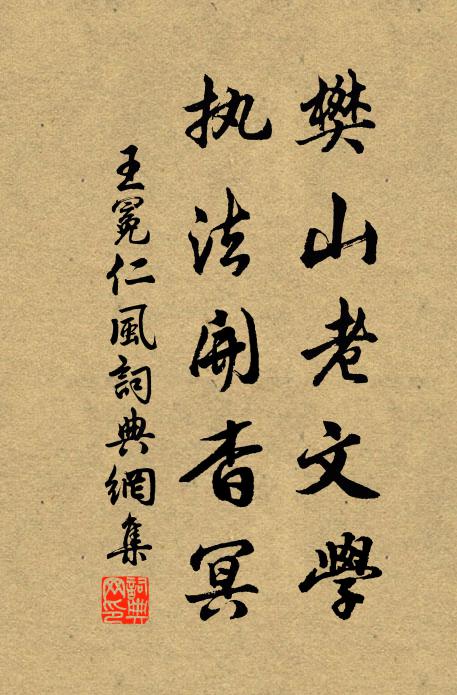 樊山老文學
执法開杳冥
王冕仁風詞典網集
詞典网印